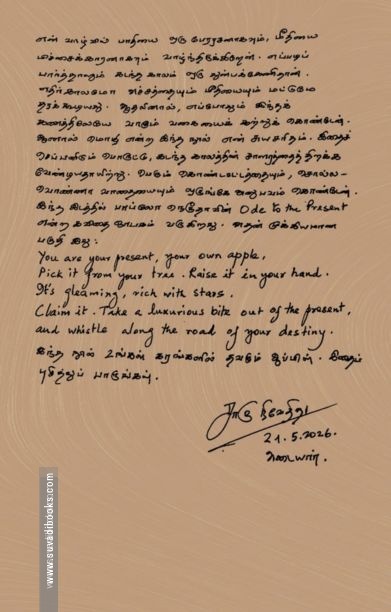 என் வாழ்வில் பாதியை ஒரு பேரரசனாகவும், மீதியை
பிச்சைக்காரனாகவும் வாழ்ந்திருக்கிறேன். எப்படிப்
பார்த்தாலும் கடந்த காலம் ஒரு துன்பக்கேணிதான்.
எதிர்காலமோ அச்சத்தையும் பீதியையும் மட்டுமே
தரக்கூடியது. ஆதலினால், எப்போதும் இந்தக்
கணத்திலேயே வாழும் வகையைக் கற்றுக் கொண்டேன்.
ஆனால் மொழி என்ற இந்த நூல் என் சுயசரிதம். இதைச்
செப்பனிடும் பொருட்டு, கடந்த காலத்தின் சாளரத்தைத் திறக்க
வேண்டியதாயிற்று. பெரும் கொண்டாட்டத்தையும், சொல்ல-
வொண்ணா வாதையையும் ஒருங்கே அனுபவம் கொண்டேன்.
இந்த இடத்தில் பாப்லோ நெரூதாவின் Ode to the Present
என்ற கவிதை ஞாபகம் வருகிறது. அதன் முக்கியமான
பகுதி இது:
You are your present, your own apple,
Pick it from your tree. Raise it in your hand.
It's gleaming, rich with stars.
Claim it. Take a luxurious bite out of the present,
and whistle along the road of your destiny.
இந்த நூல் உங்கள் கரங்களில் தவழும் ஆப்பிள். இதைப்
புசித்துப் பாருங்கள்.
சாரு நிவேதிதா
21.5.2026.
அடையார்.
www.suvadibooks.com